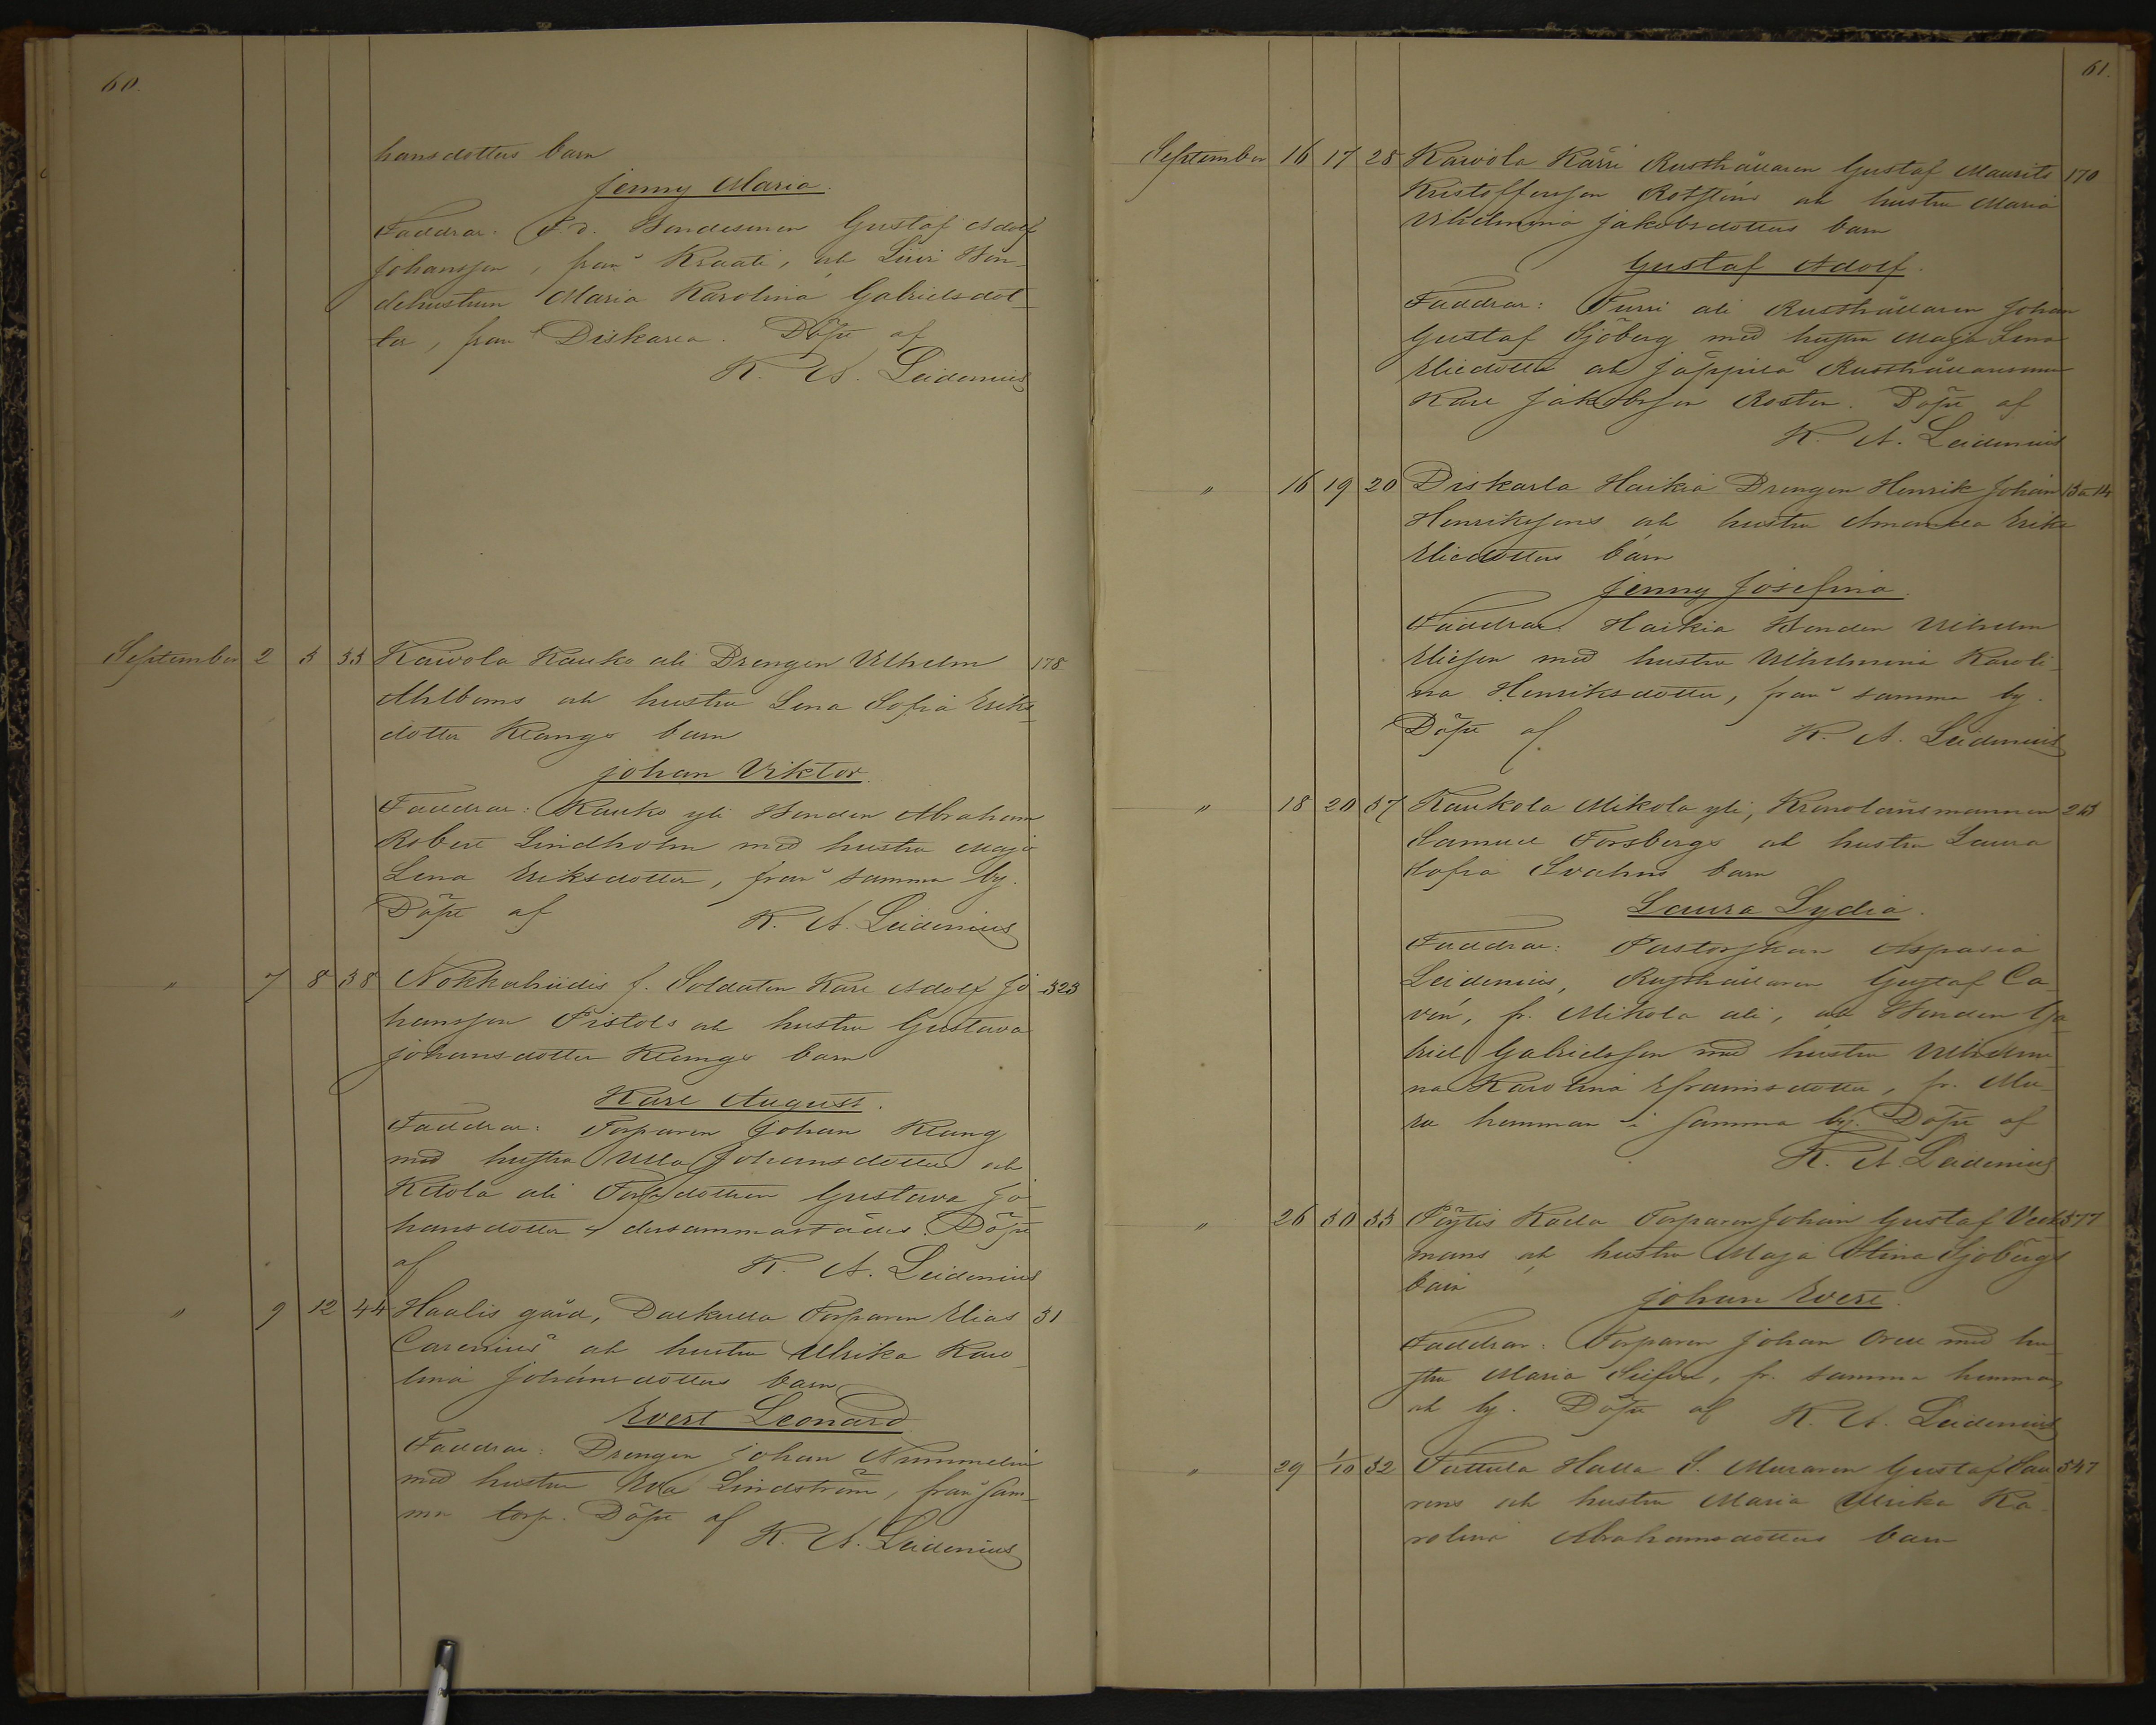 60.
hansdotters barn
Jenny Maria.
Faddrar: F. d. Bondesonen Gustaf Adolf
Johansson, från Kraati, och Liuri Bon-
dehustrun Maria Karolina Gabrielsdot-
ter, från Diskarla. Döpt af
K. A. Leidenius
September 2 3 33 Kaivola Kauko ali Drengen Vilhelm 178
Ahlboms och hustru Lena Sofia Eriks-
dotter Klangs barn
Johan Viktor.
Faddrar: Kauko yli Bonden Abraham
Robert Lindholm med hustru Maja
Lena Eriksdotter, från samma by.
Döpt af K. A. Leidenius
" 7 8 38 Nokkahiidis f. Soldaten Karl Adolf Jo- 323
hansson Pistols och hustru Gustava
Johansdotter Klangs barn
Karl August.
Faddrar: Torparen Johan Klang
med hustru Ulla Johansdotter och
Ketola ali Torpdottren Gustava Jo-
hansdotter dersammastädes. Döpt
af K. A. Leidenius
" 9 12 44 Haalis gård, Dalkulla Torparen Elias 31
Carenius och hustru Ulrika Karo-
lina Johansdotters barn
Evert Leonard
Faddrar: Drengen Johan Nummelin
med hustru Eva Lindström, från sam-
ma torp. Döpt af
K. A. Leidenius
61.
September 16 17 28 Kaivola Kärri Rusthållaren Gustaf Maurits 170
Kristoffersson Rotsténs och hustru Maria
Vilhelmina Jakobsdotters barn
Gustaf Adolf.
Faddrar: Furri ali Rusthållaren Johan
Gustaf Sjöberg med hustru Maja Lena
Eliedotter och Jäppilä Rusthållaresonen
Karl Jakobsson Rosten. Döpt af
K. A. Leidenius
" 16 19 20 Diskarla Haikia Drengen Henrik Johan
Henrikssons och hustru Amanda Erika
Eliedotters barn
Jenny Josefina.
Faddrar: Haikia Bonden Vilhelm
Eliesson med hustru Vilhelmina Karoli-
na Henriksdotter, från samma by.
Döpt af K. A. Leidenius
" 18 20 37 Kaukola Mikola yli, Kronolänsmannen
Samuel Forsbergs och hustru Laura
Sofia Svahns barn
Laura Lydia.
Faddrar: Pastorskan Aspasia
Leidenius, Rusthållaren Gustaf Ca-
vén, fr. Mikola ali, och Bonden Ga-
briel Gabrielsson med hustru Vilhelmi-
na Karolina Efraimsdotter, fr. Ma-
ra hemman i samma by. Döpt af
K. A. Leidenius
" 26 30 33 Pöytis Kada Torparen Johan Gustaf Vest- 377
mans och hustru Maja Stina Sjöbergs
barn
Johan Evert.
Faddrar: Torparen Johan Orell med hu-
stru Maria, fr. samma hemman
och by. Döpt af K. A. Leidenius
" 29 1/10 32 Tuttula Halla S. Muraren Gustaf Lau- 347
rens och hustru Maria Ulrika Ka-
rolina Abrahamsdotters barn